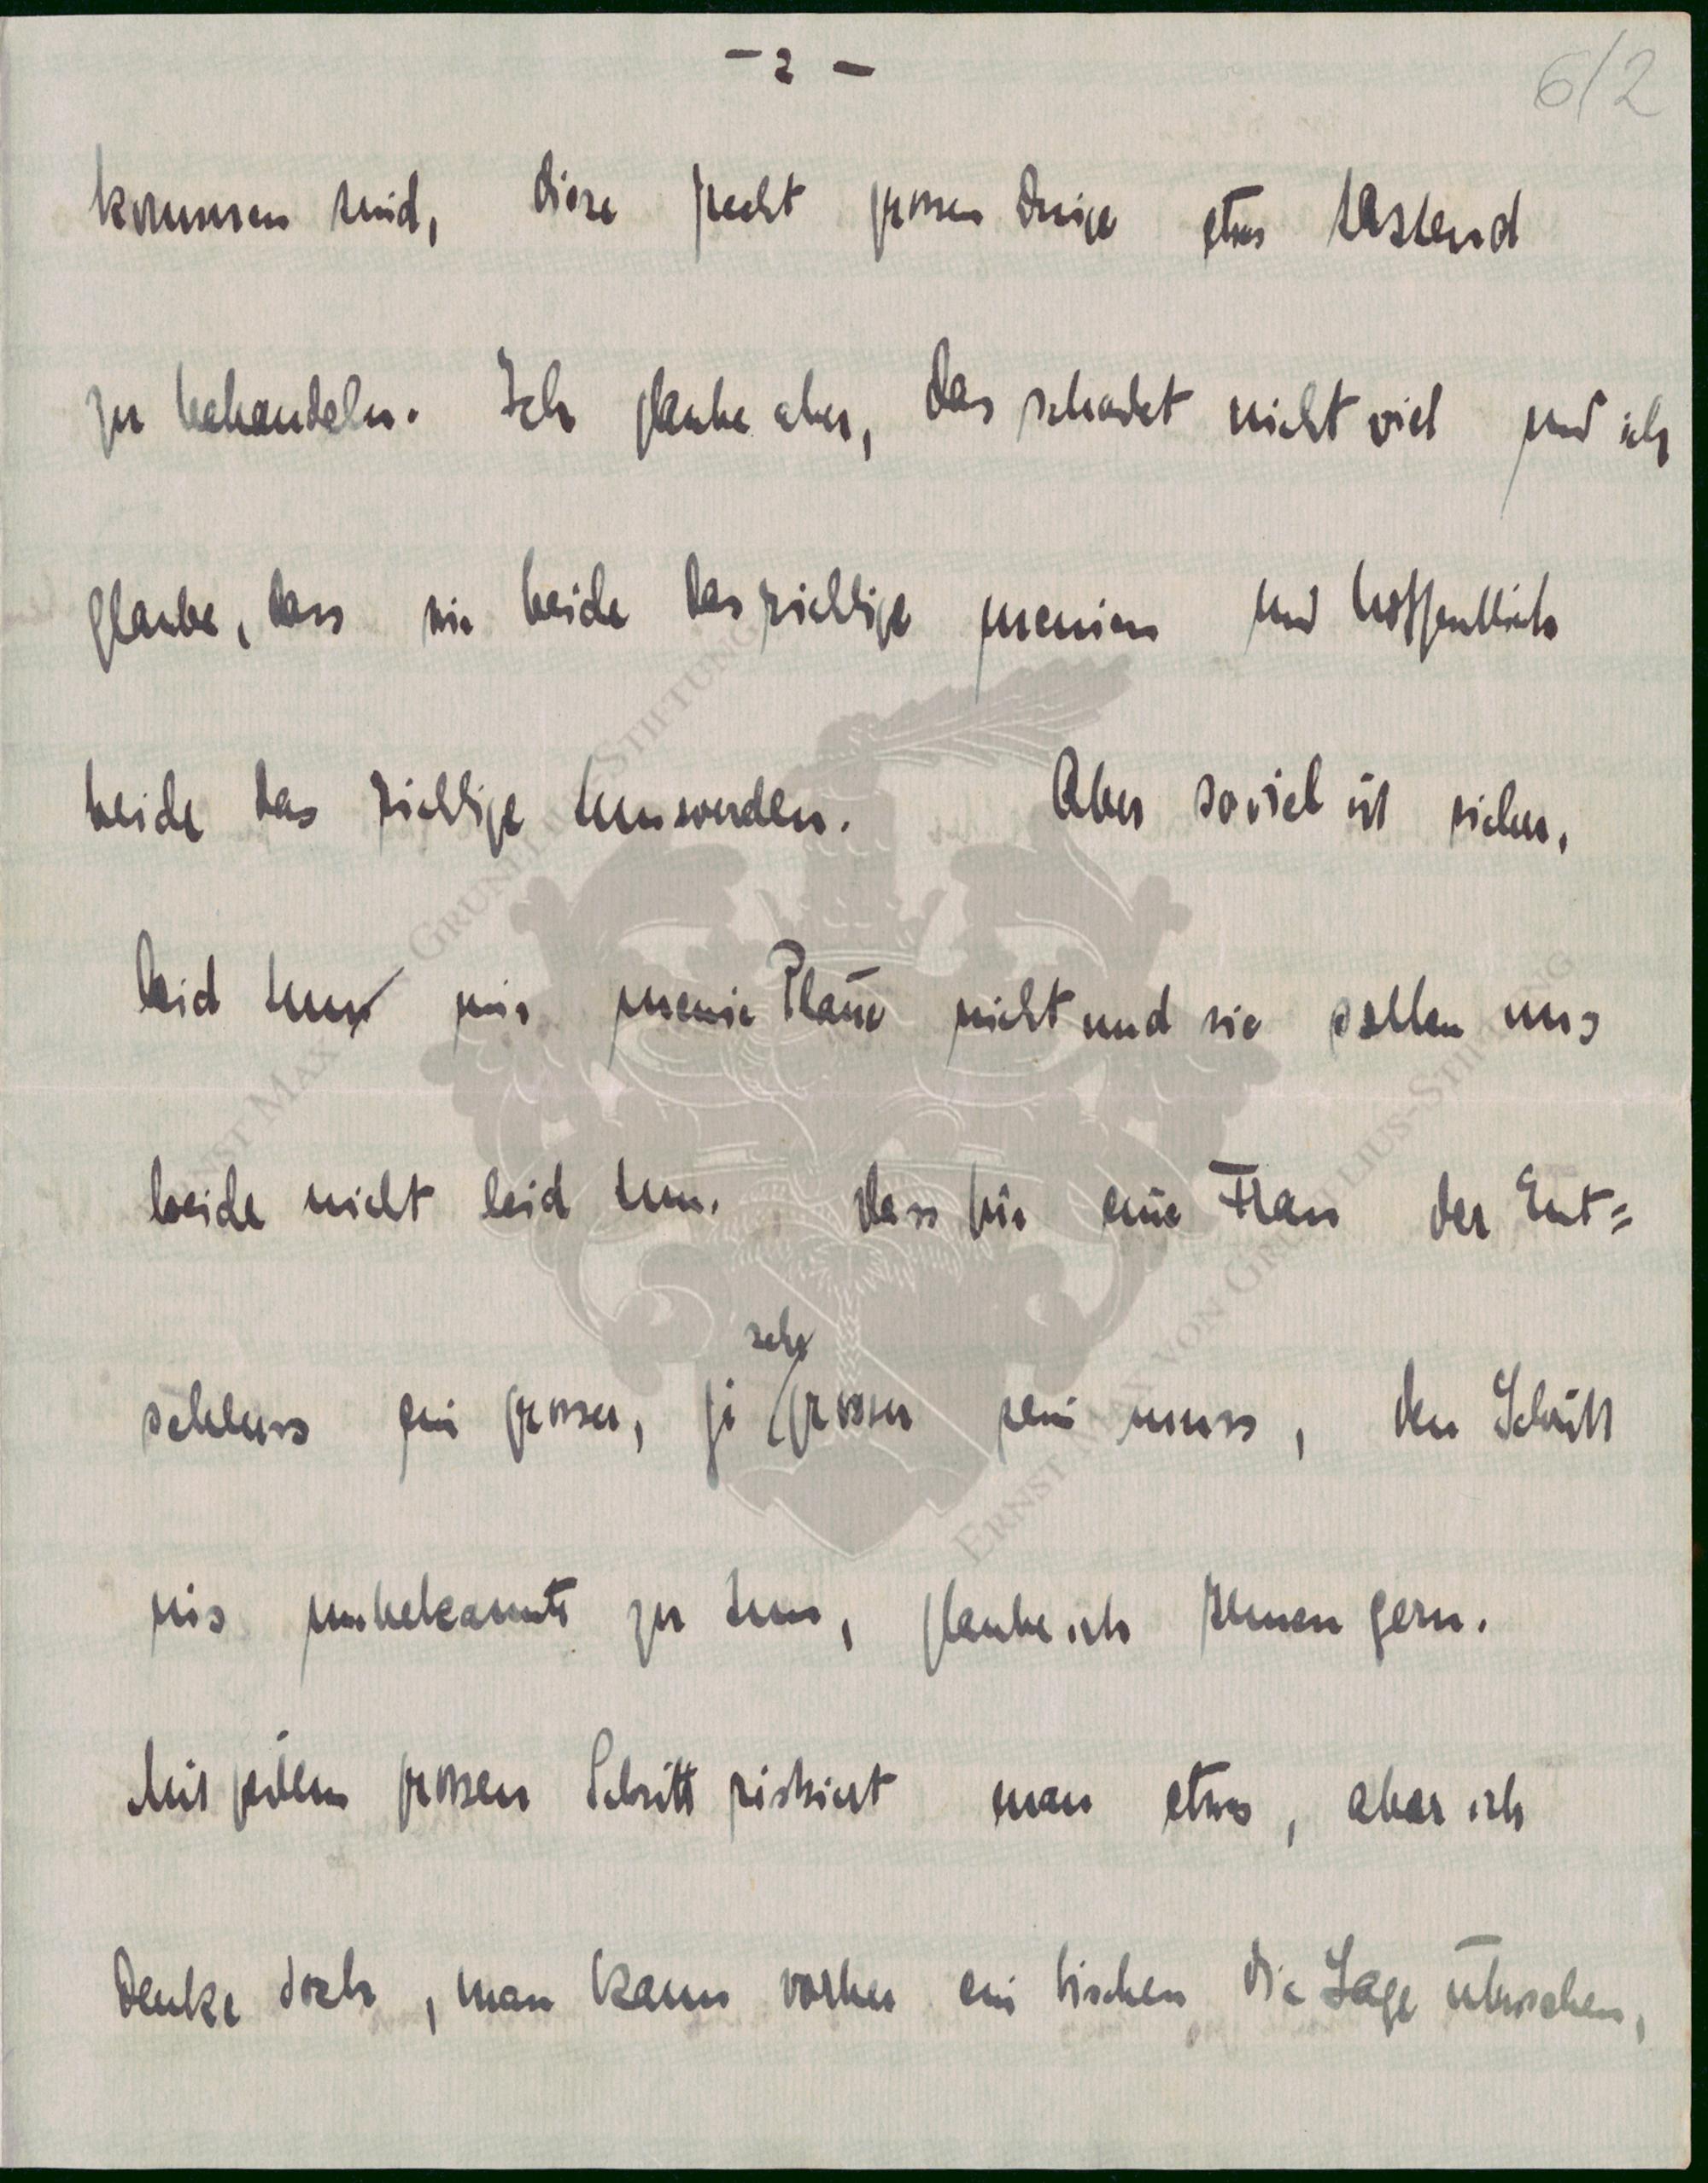 - 2 -
6/2
kommen sind, diese recht grossen Dinge etwas tastend
zu behandeln. Ich glaube aber, das schadet nicht viel und ich
glaube, dass wir beide das richtige meinen und hoffentlich
beide das richtige tun werden. Aber soviel ist sicher,
leid tun mir meine Pläne nicht und sie sollen uns
beide nicht leid tun. Dass für eine Frau der Ent=
sehr
schluss ein grosser, ja grosser sein muss, den Schritt
ins unbekannte zu tun, glaube ich Ihnen gern.
Mit jedem grossen Schritt riskiert man etwas, aber ich
denke doch, man kann vorher ein bischen die Lage übersehen,
ERNST MAX VON GRUNELIUS-STIFTUNG
ERNST MAX VON GRUNELIUS-STIFTUNG